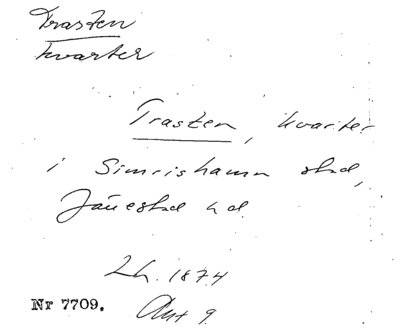 Trasten
kvarter
Trasten, kvarter
i Simrishamn stad,
Järrestad hd
Lh. 1874
Nr 7709. Akt 9.